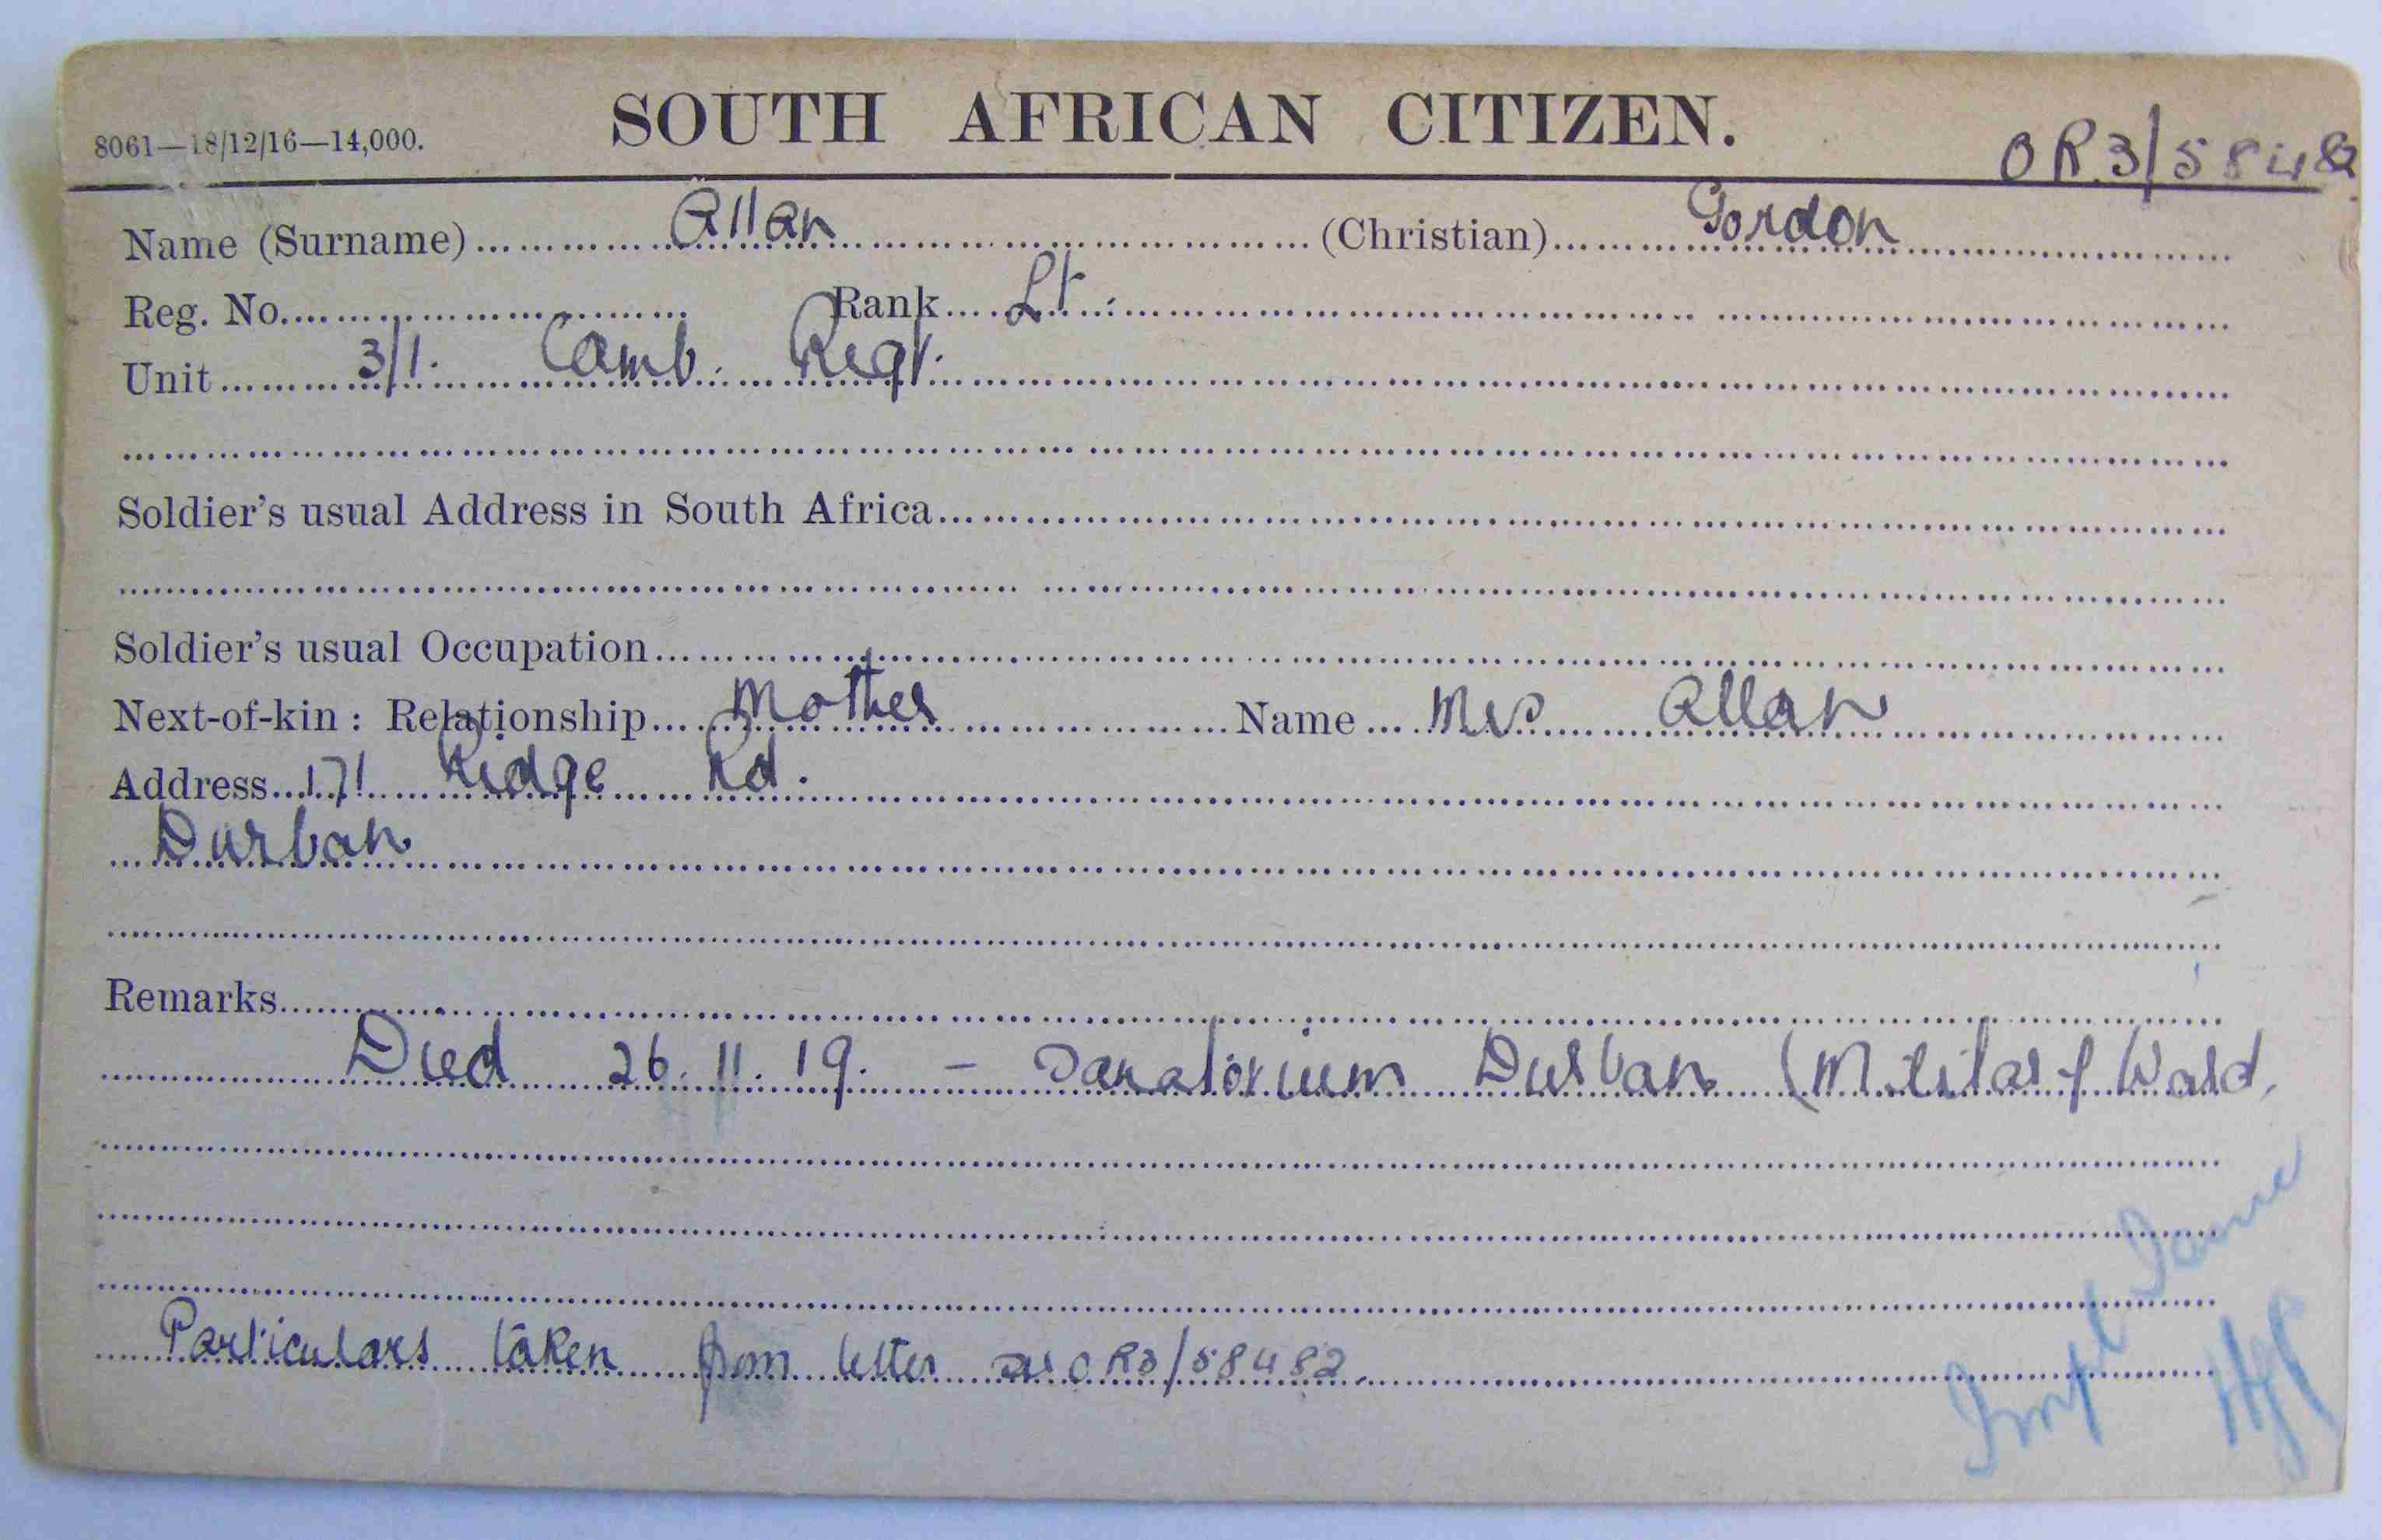 8061—18/12/16—14,000.
SOUTH AFRICAN CITIZEN.
OR3/58482
Name (Surname) Allan (Christian) Gordon
Reg. No. Rank Lt.
Unit 3/1. Camb. Regt.
Soldier's usual Address in South Africa
Soldier's usual Occupation
Next-of-kin: Relationship Mother Name Mrs Allan
Address 171 Ridge Rd.
Durban
Remarks
Died 26.11.19. – Sanatorium Durban (Military Ward.
Particulars taken from letter OR3/58482.
Impl